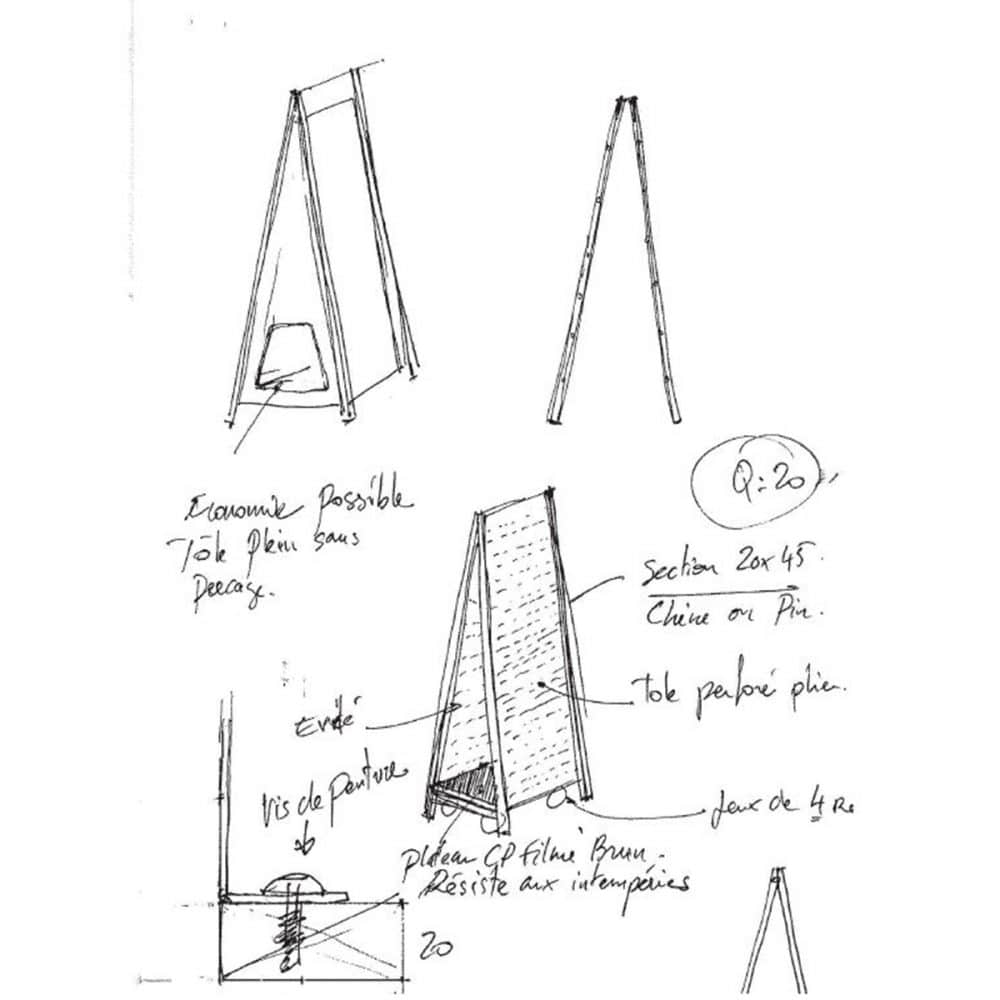 Economie possible
Tôle plein sans
percage.
Q:20
Section 20x45.
Chêne ou Pin.
tole perforé plier.
Evidé
Vis de penture
Jeux de 4 Ro
plateau CP Filmé Brun.
Résiste aux intempéries
20